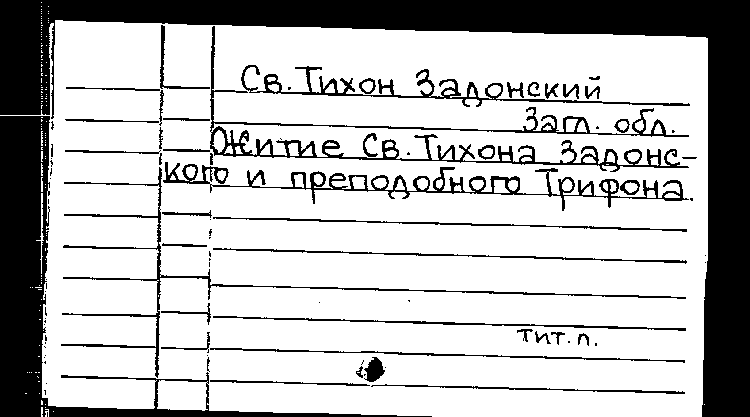 Св. Тихон Задонский
Загл. обл.
Ожитие Св. Тихона Задонс-
кого и преподобного Трифона.
тит.л.